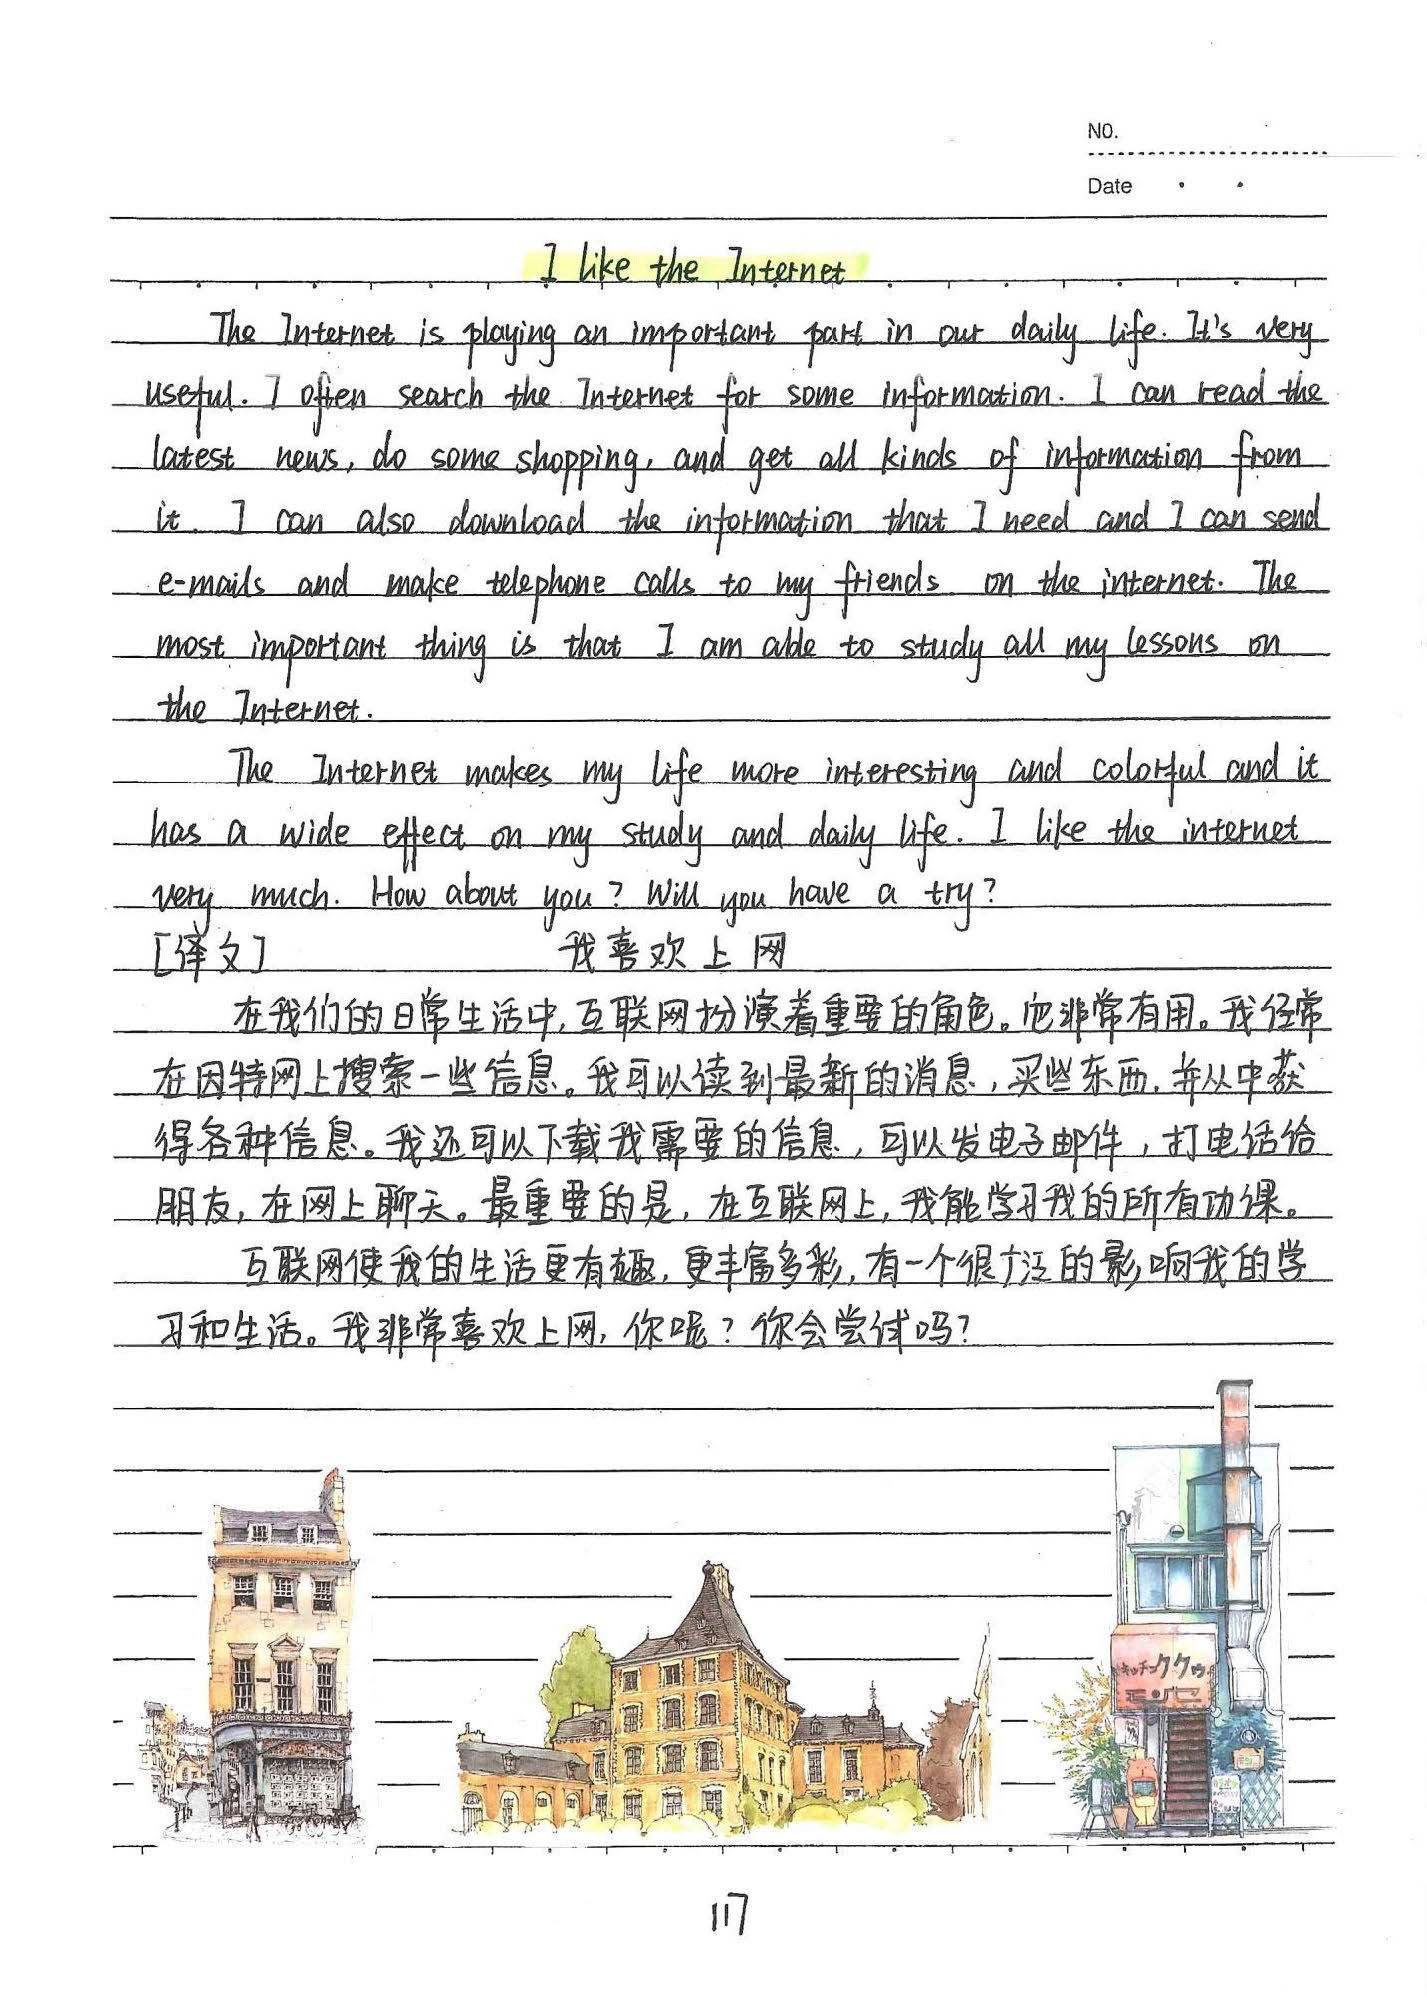 NO.
Date
I like the Internet
The Internet is playing an important part in our daily life. It's very
useful. I often search the Internet for some information. I can read the
latest news, do some shopping, and get all kinds of information from
it. I can also download the information that I need and I can send
e-mails and make telephone calls to my friends on the internet. The
most important thing is that I am able to study all my lessons on
the Internet.
The Internet makes my life more interesting and colorful and it
has a wide effect on my study and daily life. I like the internet
very much. How about you? Will you have a try?
[译文] 我喜欢上网
在我们的日常生活中,互联网扮演着重要的角色。它非常有用。我经常
在因特网上搜索一些信息。我可以读到最新的消息,买些东西,并从中获
得各种信息。我还可以下载我需要的信息,可以发电子邮件,打电话给
朋友,在网上聊天。最重要的是,在互联网上,我能学习我的所有功课。
互联网使我的生活更有趣,更丰富多彩,有一个很广泛的影响我的学
习和生活。我非常喜欢上网,你呢?你会尝试吗?
キッチンククゥ
117